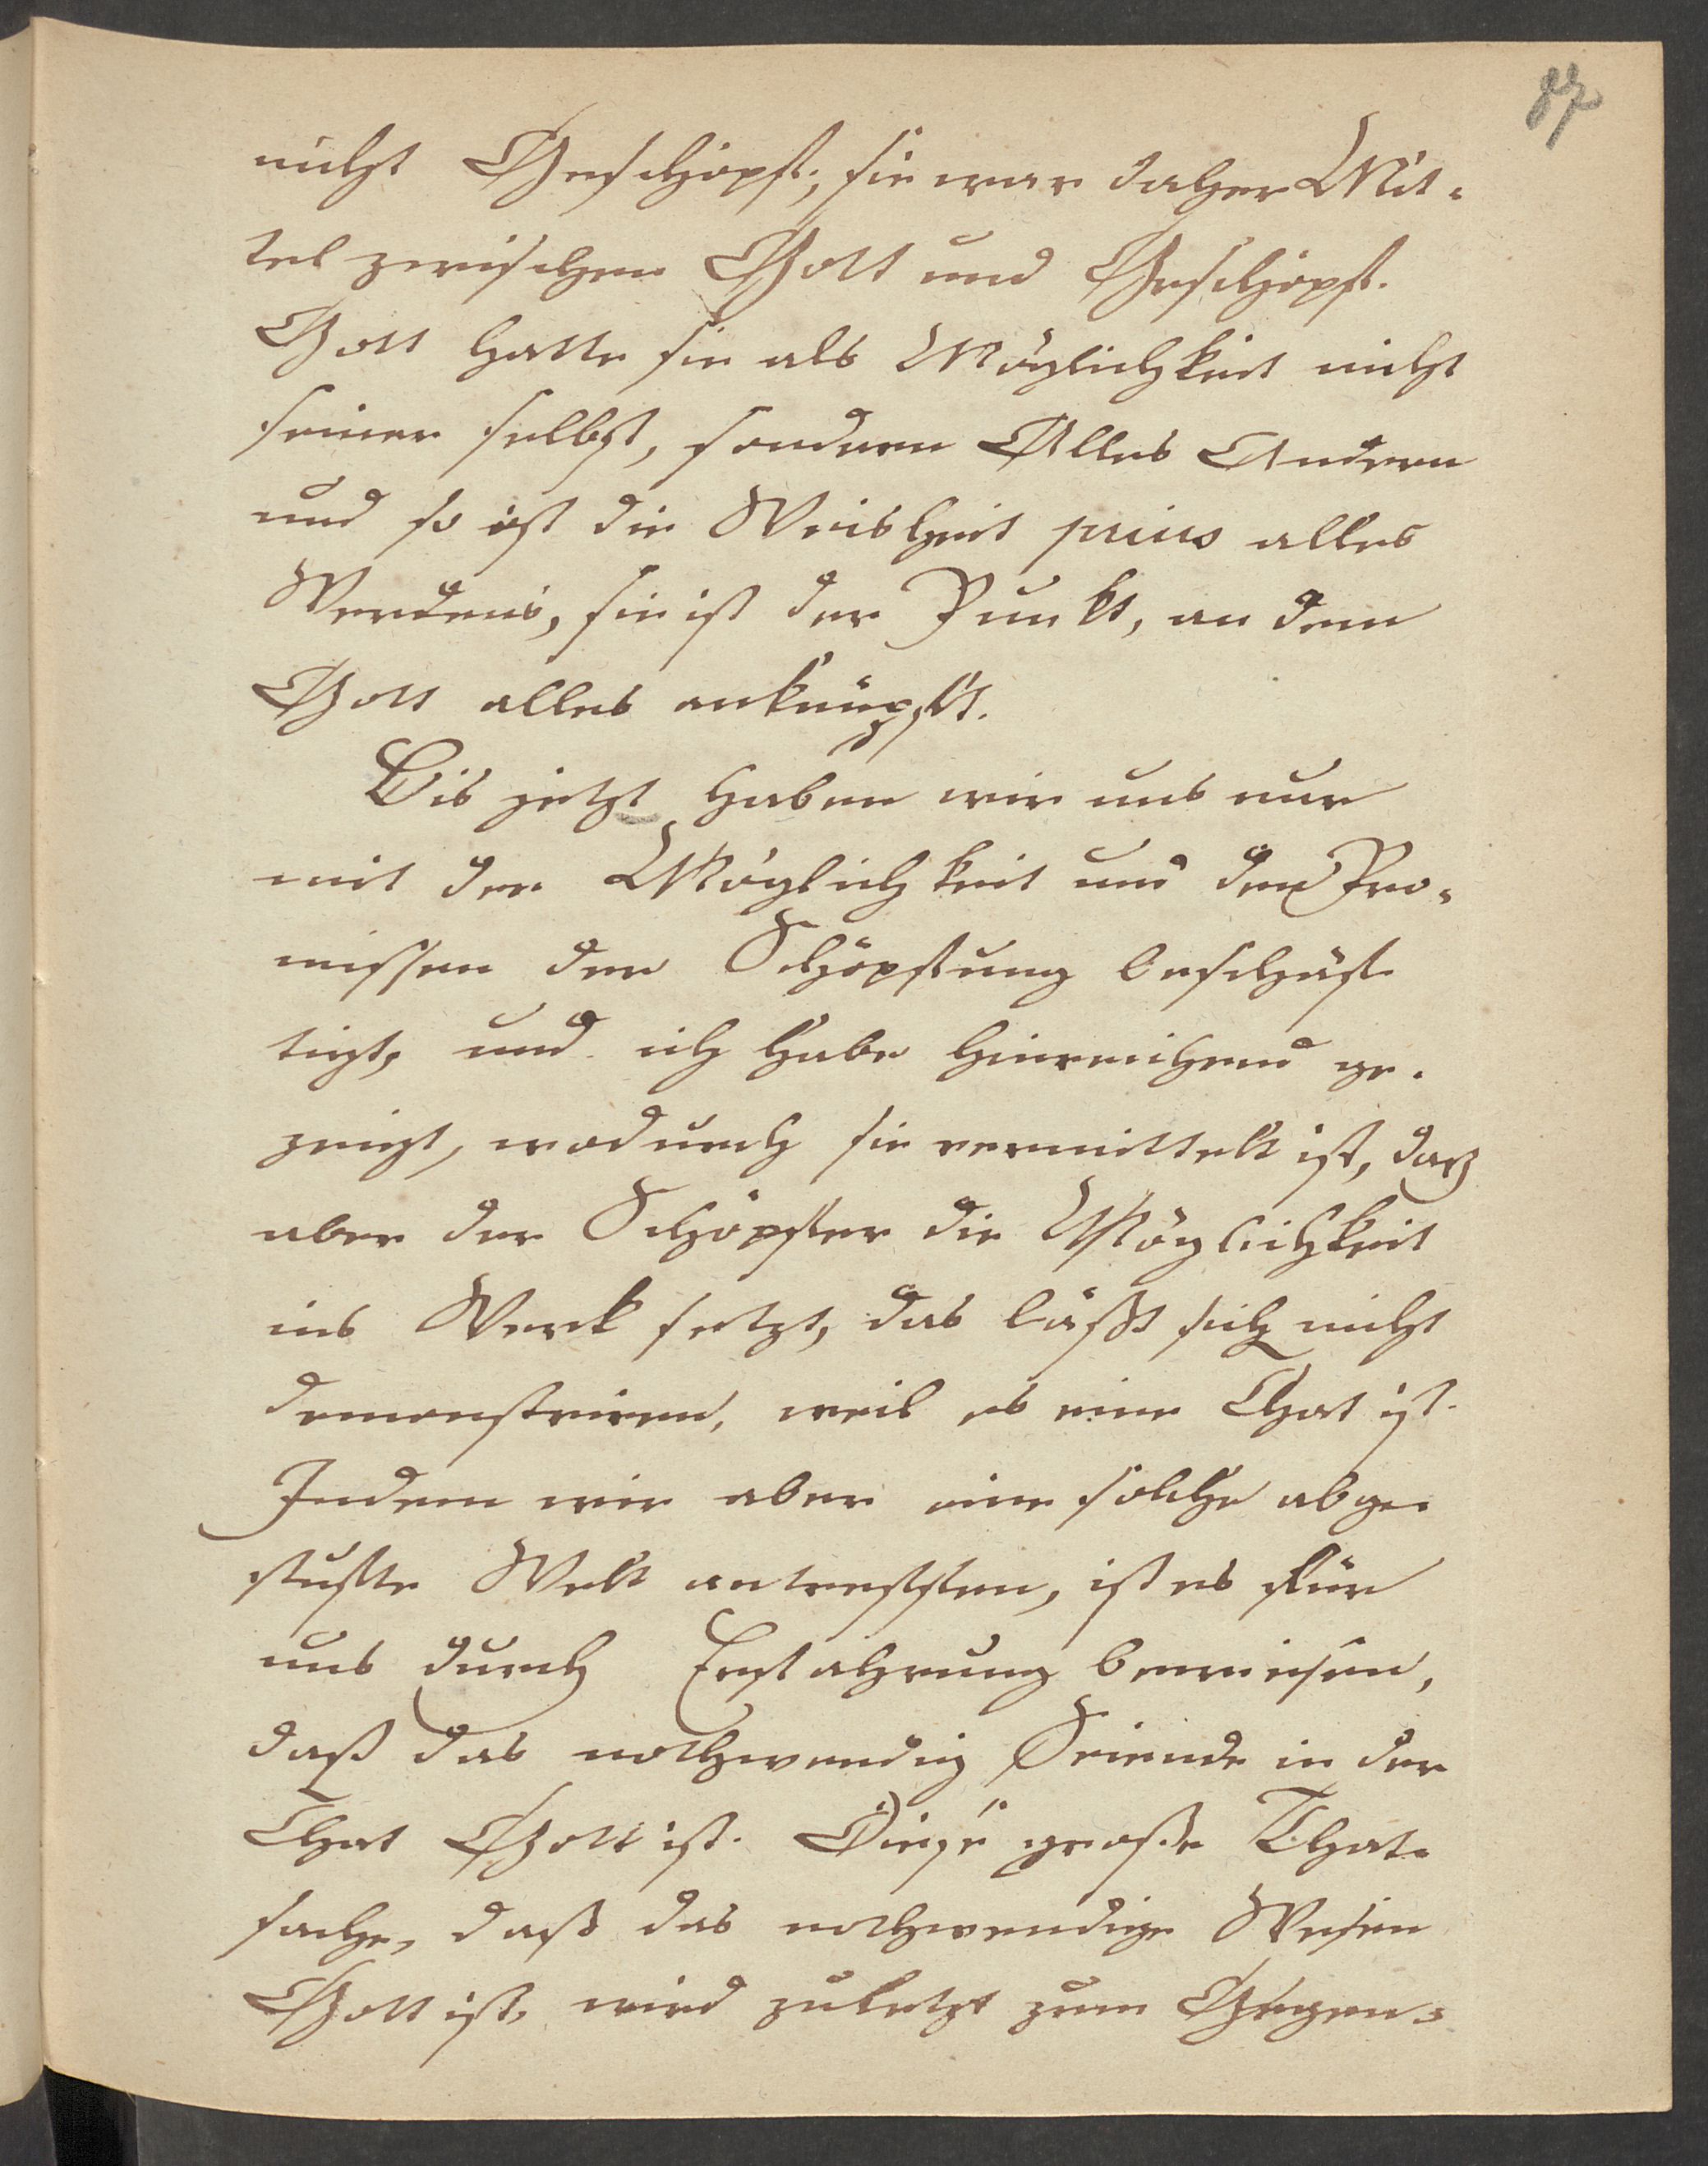 87
nicht Geschöpf; sie war daher Mit-
tel zwischen Gott und Geschöpf.
Gott hatte sie als Möglichkeit nicht
seiner selbst, sondern Alles Andern
und so ist die Weisheit prius alles
Werdens, sie ist der Punkt, an dem
Gott alles anknüpft.
Bis jetzt haben wir uns nur
mit der Möglichkeit und den Prä-
missen der Schöpfung beschäf-
tigt, und ich habe hinreichend ge-
zeigt, wodurch sie vermittelt ist, daß
aber der Schöpfer die Möglichkeit
ins Werk setzt, das läßt sich nicht
demonstriren, weil es eine That ist.
Indem wir aber eine solche abge-
stufte Welt antreffen, ist es für
uns durch Erfahrung bewiesen,
daß das nothwendig Seiende in der
That Gott ist. Diese große That-
sache, daß das nothwendige Wesen
Gott ist, wird zuletzt zum Gegen-